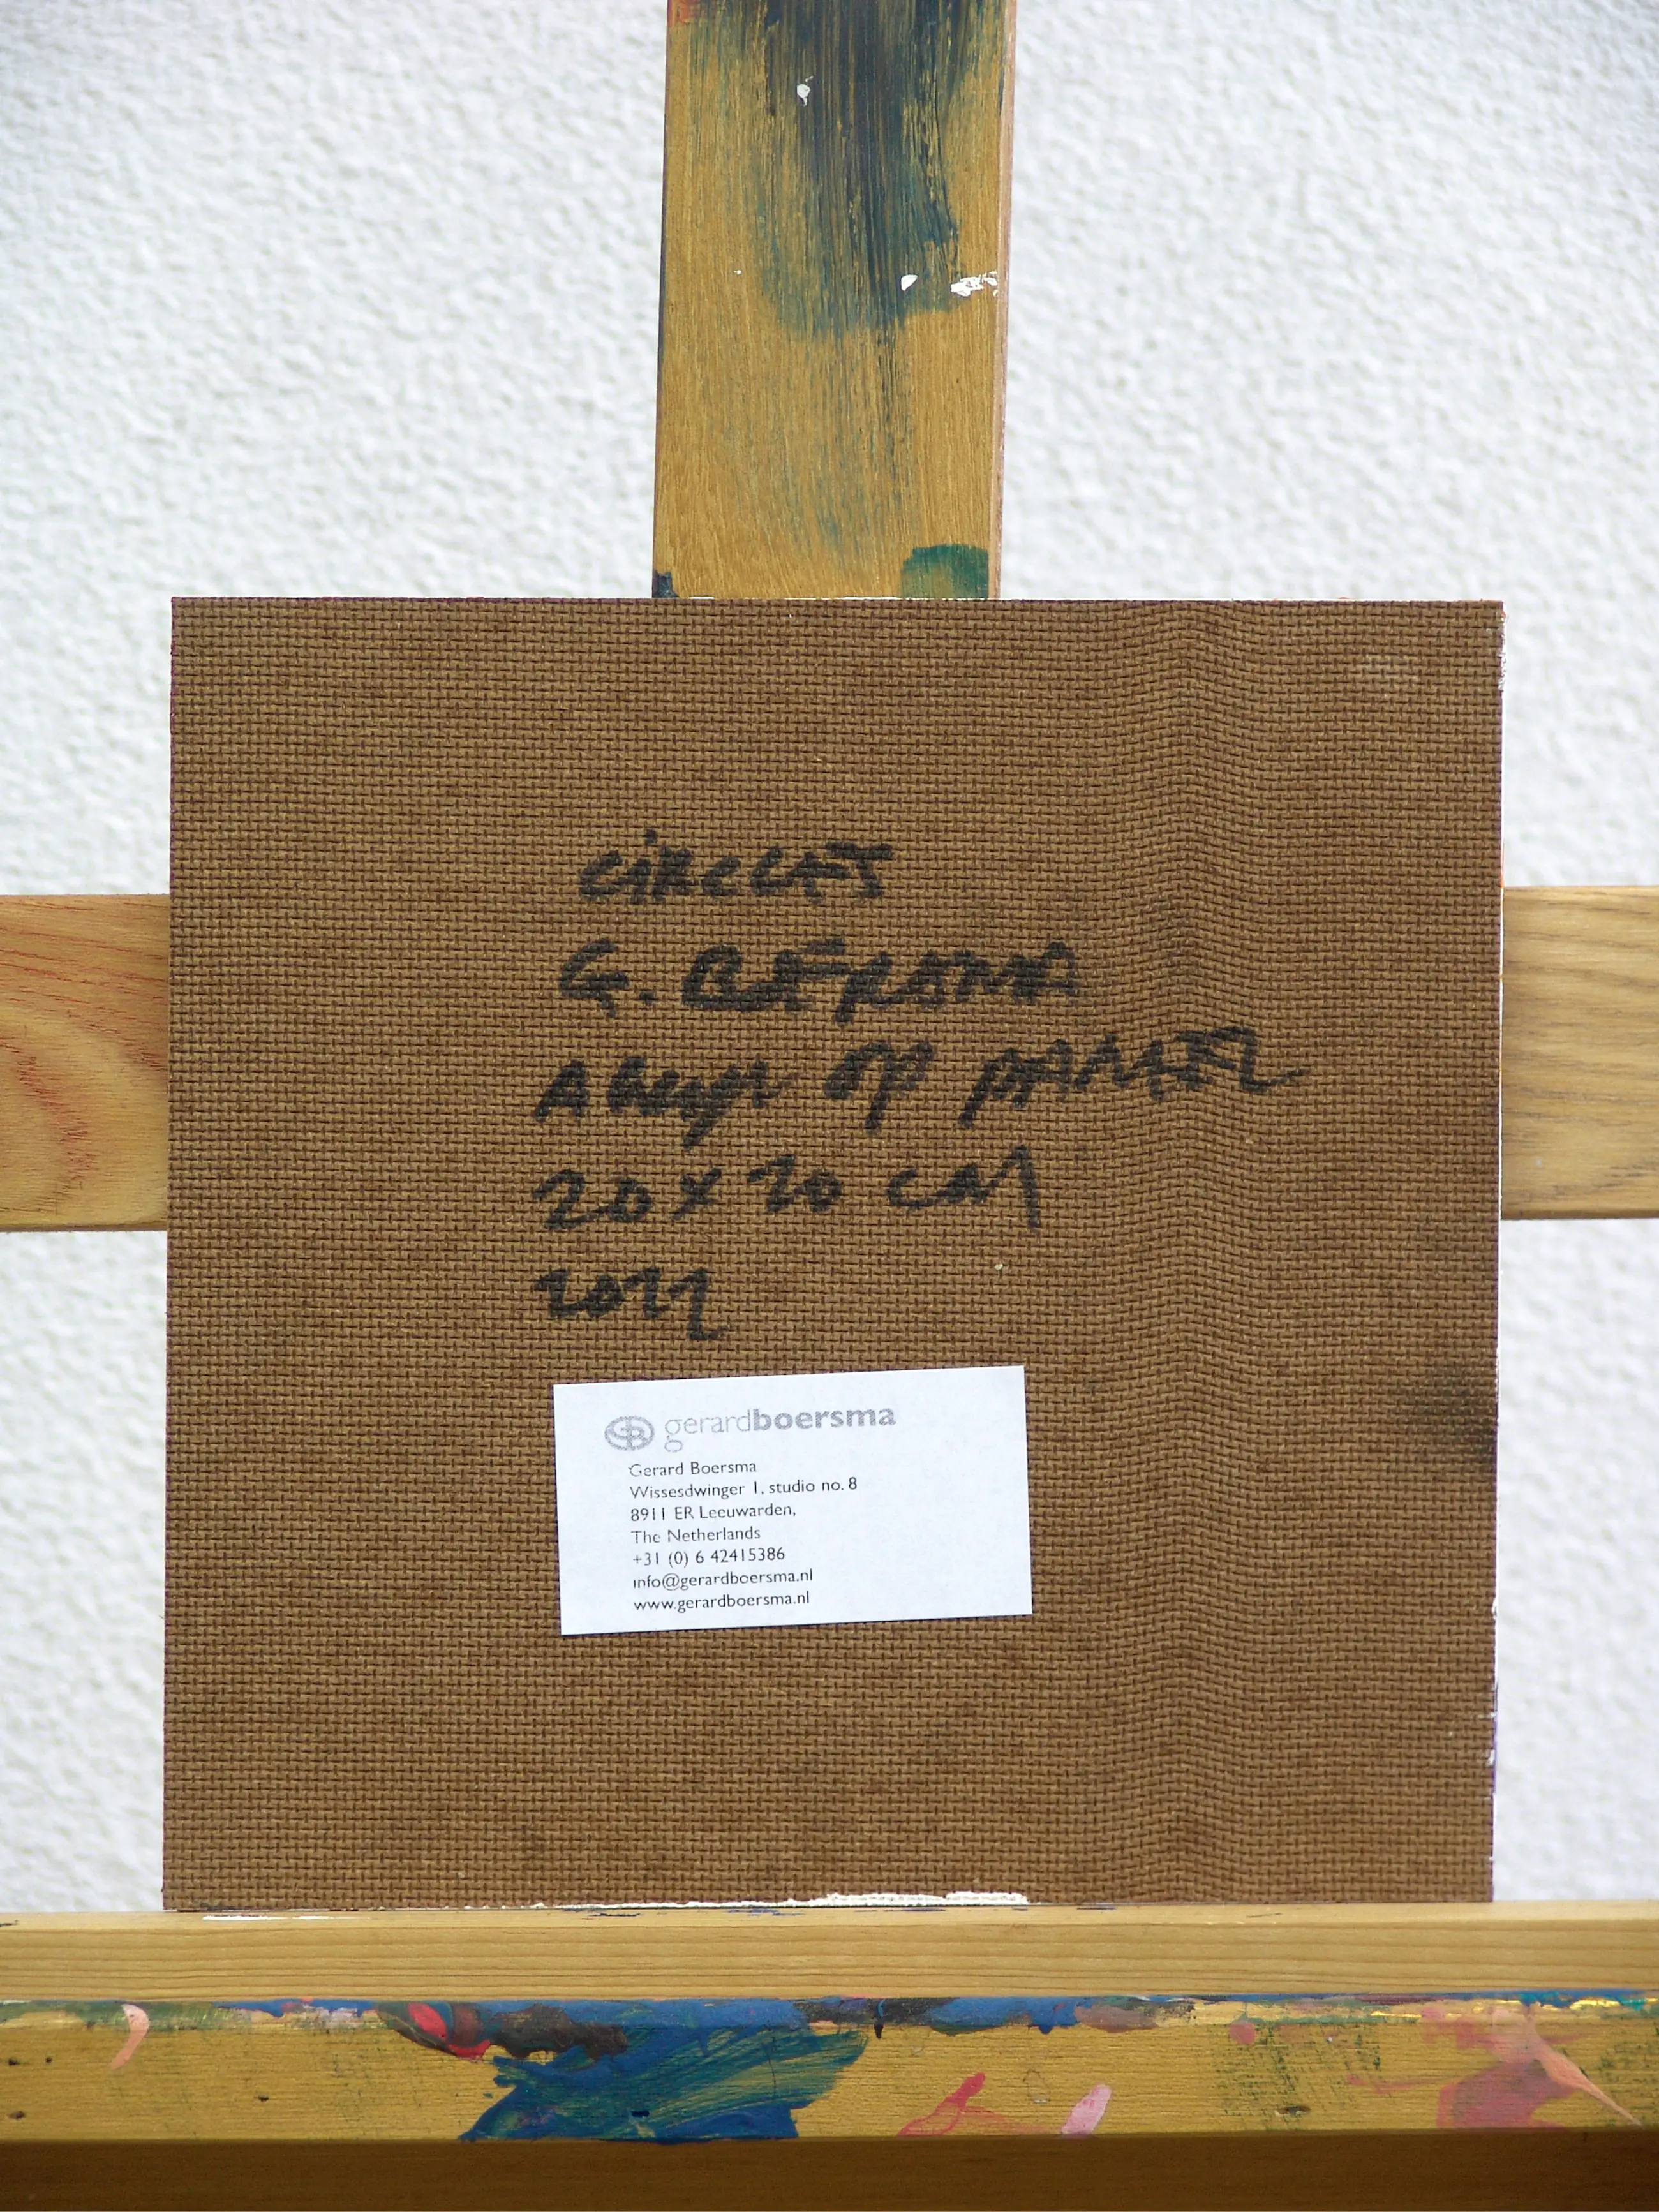 CIRCLES
G. BOERSMA
ACRYL OP PANEEL
20 x 20 CM
2022
GB gerardboersma
Gerard Boersma
Wissesdwinger 1, studio no. 8
8911 ER Leeuwarden,
The Netherlands
+31 (0) 6 42415386
info@gerardboersma.nl
www.gerardboersma.nl